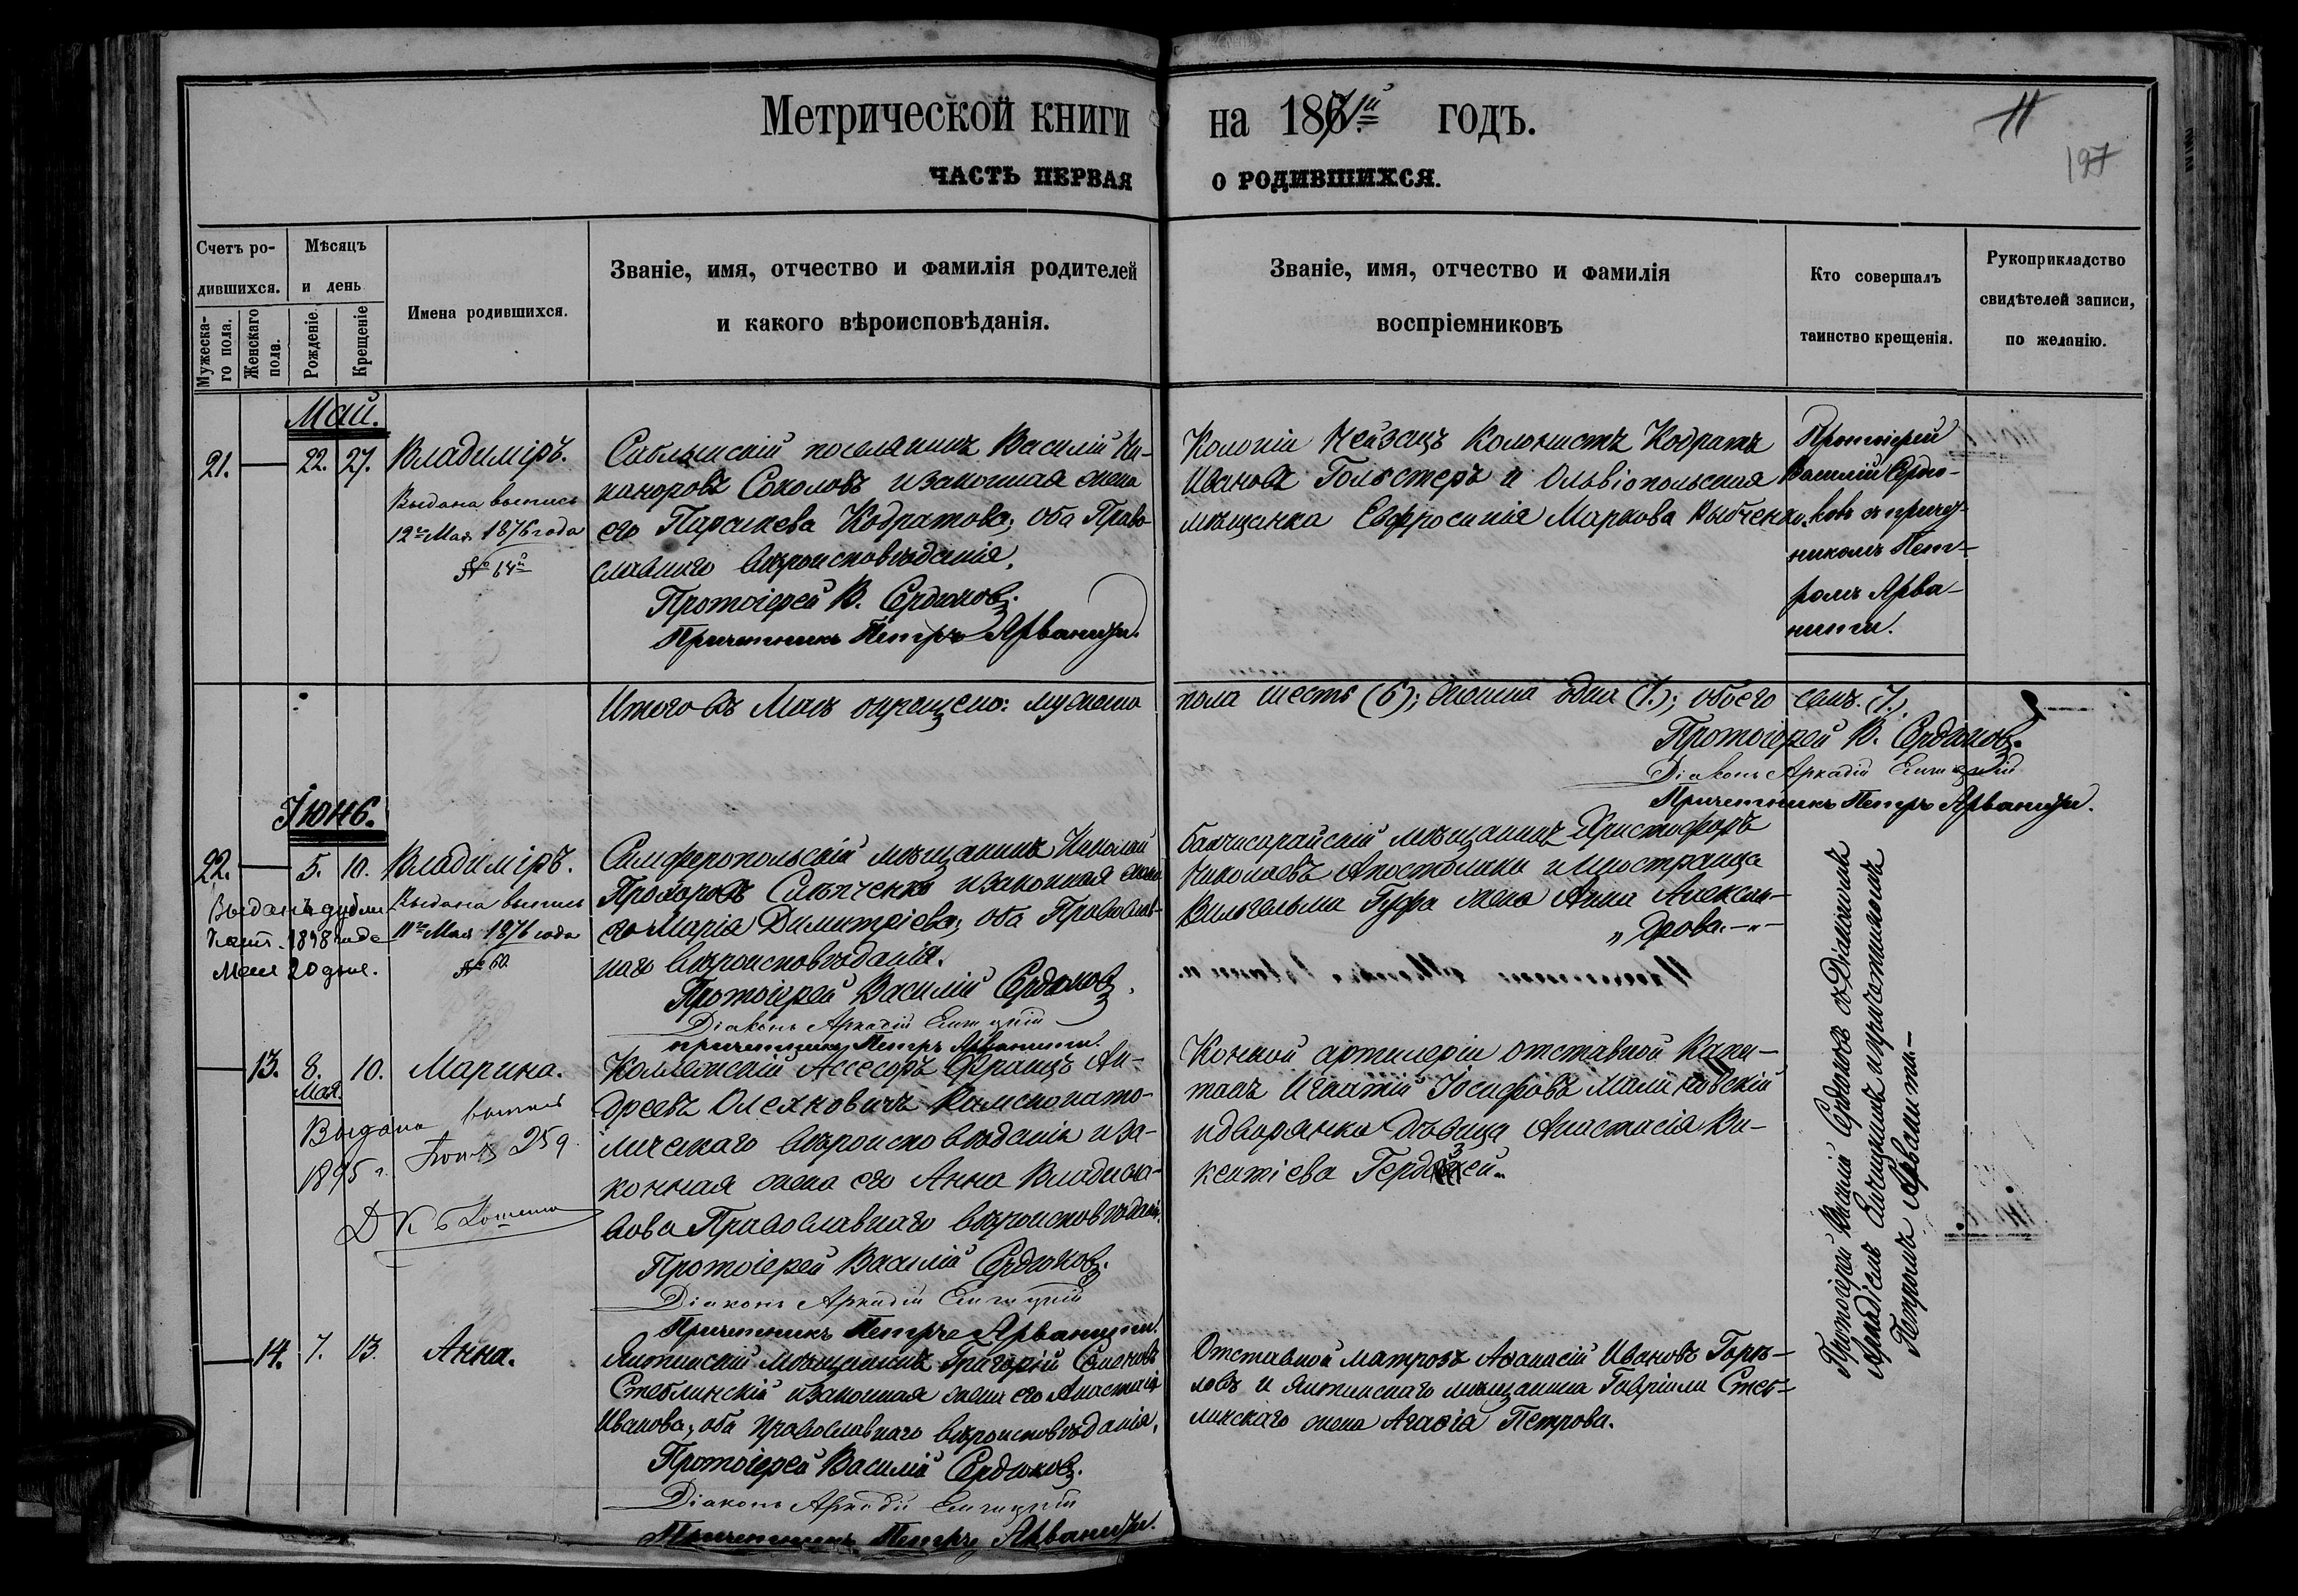 Метрической книги на 1871й годъ.
11
197
ЧАСТЬ ПЕРВАЯ О РОДИВШИХСЯ.
Счетъ ро-
дившихся.
Мужеска-
го пола.
Женскаго
пола.
Мѣсяцъ
и день
Рожденіе.
Крещеніе
Имена родившихся.
Званіе, имя, отчество и фамилія родителей
и какого вѣроисповѣданія.
Званіе, имя, отчество и фамилія
воспріемниковъ
Кто совершалъ
таинство крещенія.
Рукоприкладство
свидѣтелей записи,
по желанію.
Май.
21. — 22. 27. Владиміръ.
Выдана выпись
12го Мая 1876 года
№ 64й
Саблынскій поселянинъ Василій Ни-
каноровъ Соколовъ и законная жена
его Параскева Кодратова; оба Право-
славнаго вѣроисповѣданія.
Протоіерей В. Сердюковъ.
Причетникъ Петръ Арванити.
Колоніи Нейзацъ Колонистъ Кодратъ
Ивановъ Гольстеръ и Ольвіопольская
мѣщанка Евфросинія Маркова Рыбченк
Протоіерей
Василій Сердю-
ковъ съ причет-
никомъ Пет-
ромъ Арва-
нити.
Итого въ Маѣ окрещено: мужеска пола шесть (6); женска одна (1.); обоего семь. (7.)
Протоіерей В. Сердюковъ.
Діаконъ Аркадій
Причетникъ Петръ Арванити.
Іюнь.
22. — 5. 10. Владиміръ.
Выданъ дубли
катъ 1898 года
Мая 20 дня.
Выдана выпись
11го Мая 1876 года
№ 60
Симферопольскій мѣщанинъ Николай
Прохоровъ Сильченко и законная жена
его Марія Димитріева; оба Православ-
наго вѣроисповѣданія.
Протоіерей Василій Сердюковъ.
Діаконъ Аркадій
причетникъ Петръ Арванити.
Бахчисарайскій мѣщанинъ Христофоръ
Николаевъ Апостолики и иностранца
Вильгельма Гуфа жена Анна Алексан-
" дрова. - " -
— 13. 8. 10. Марина.
Мая.
Выдана выпись
1895 г. 259
Коллежскій Ассесоръ Францъ Ан-
дреевъ Олехновичъ Римскокато-
лическаго вѣроисповѣданія и за-
конная жена его Анна Владисла-
вова Православнаго вѣроисповѣданія.
Протоіерей Василій Сердюковъ.
Діаконъ Аркадій
Причетникъ Петръ Арванити.
Конной артилеріи отставной Капи-
танъ Игнатій Іосифовъ Малиновскій
и дворянка Дѣвица Анастасія Ви-
кентіева
— 14. 7. 13. Анна.
Ялтинскій мѣщанинъ Григорій Семеновъ
Стеблинскій и законная жена его Анастасія
Иванова, оба Православнаго вѣроисповѣданія.
Протоіерей Василій Сердюковъ.
Діаконъ Аркадій
Причетникъ Петръ Арванити.
Отставной матрозъ Аѳанасій Ивановъ Горѣ-
ловъ и Ялтинскаго мѣщанина Гавріила Стеб-
линскаго жена Агаѳія Петрова.
Протоіерей Василій Сердюковъ съ Діакономъ
Аркадіемъ и причетникомъ
Петромъ Арванити. -